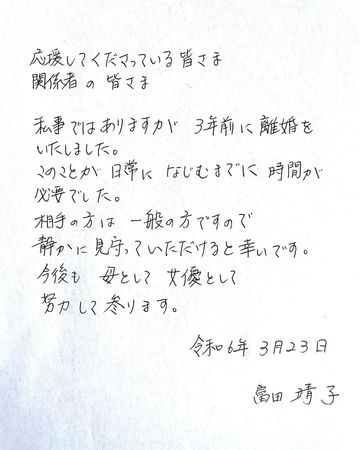 応援してくださっている皆さま
関係者の皆さま
私事ではありますが 3年前に離婚を
いたしました。
このことが日常になじむまでに時間が
必要でした。
相手の方は一般の方ですので
静かに見守っていただけると幸いです。
今後も 母として 女優として
努力して参ります。
令和6年 3月23日
富田 靖子